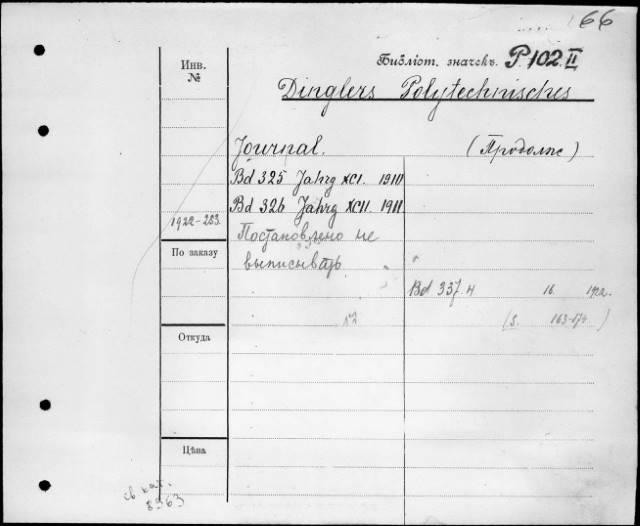 66
Инв. №
Библіот. значекъ P.102 II
Dinglers Polytechnisches
Journal. (Продолж)
Bd 325 Jahrg XCI. 1910
Bd 326 Jahrg XCII. 1911
1922-283
Постановлено не
выписывать
По заказу
Bd 337 H 16 1922.
(S. 163-174)
Откуда
Цѣна
св кат.
8963